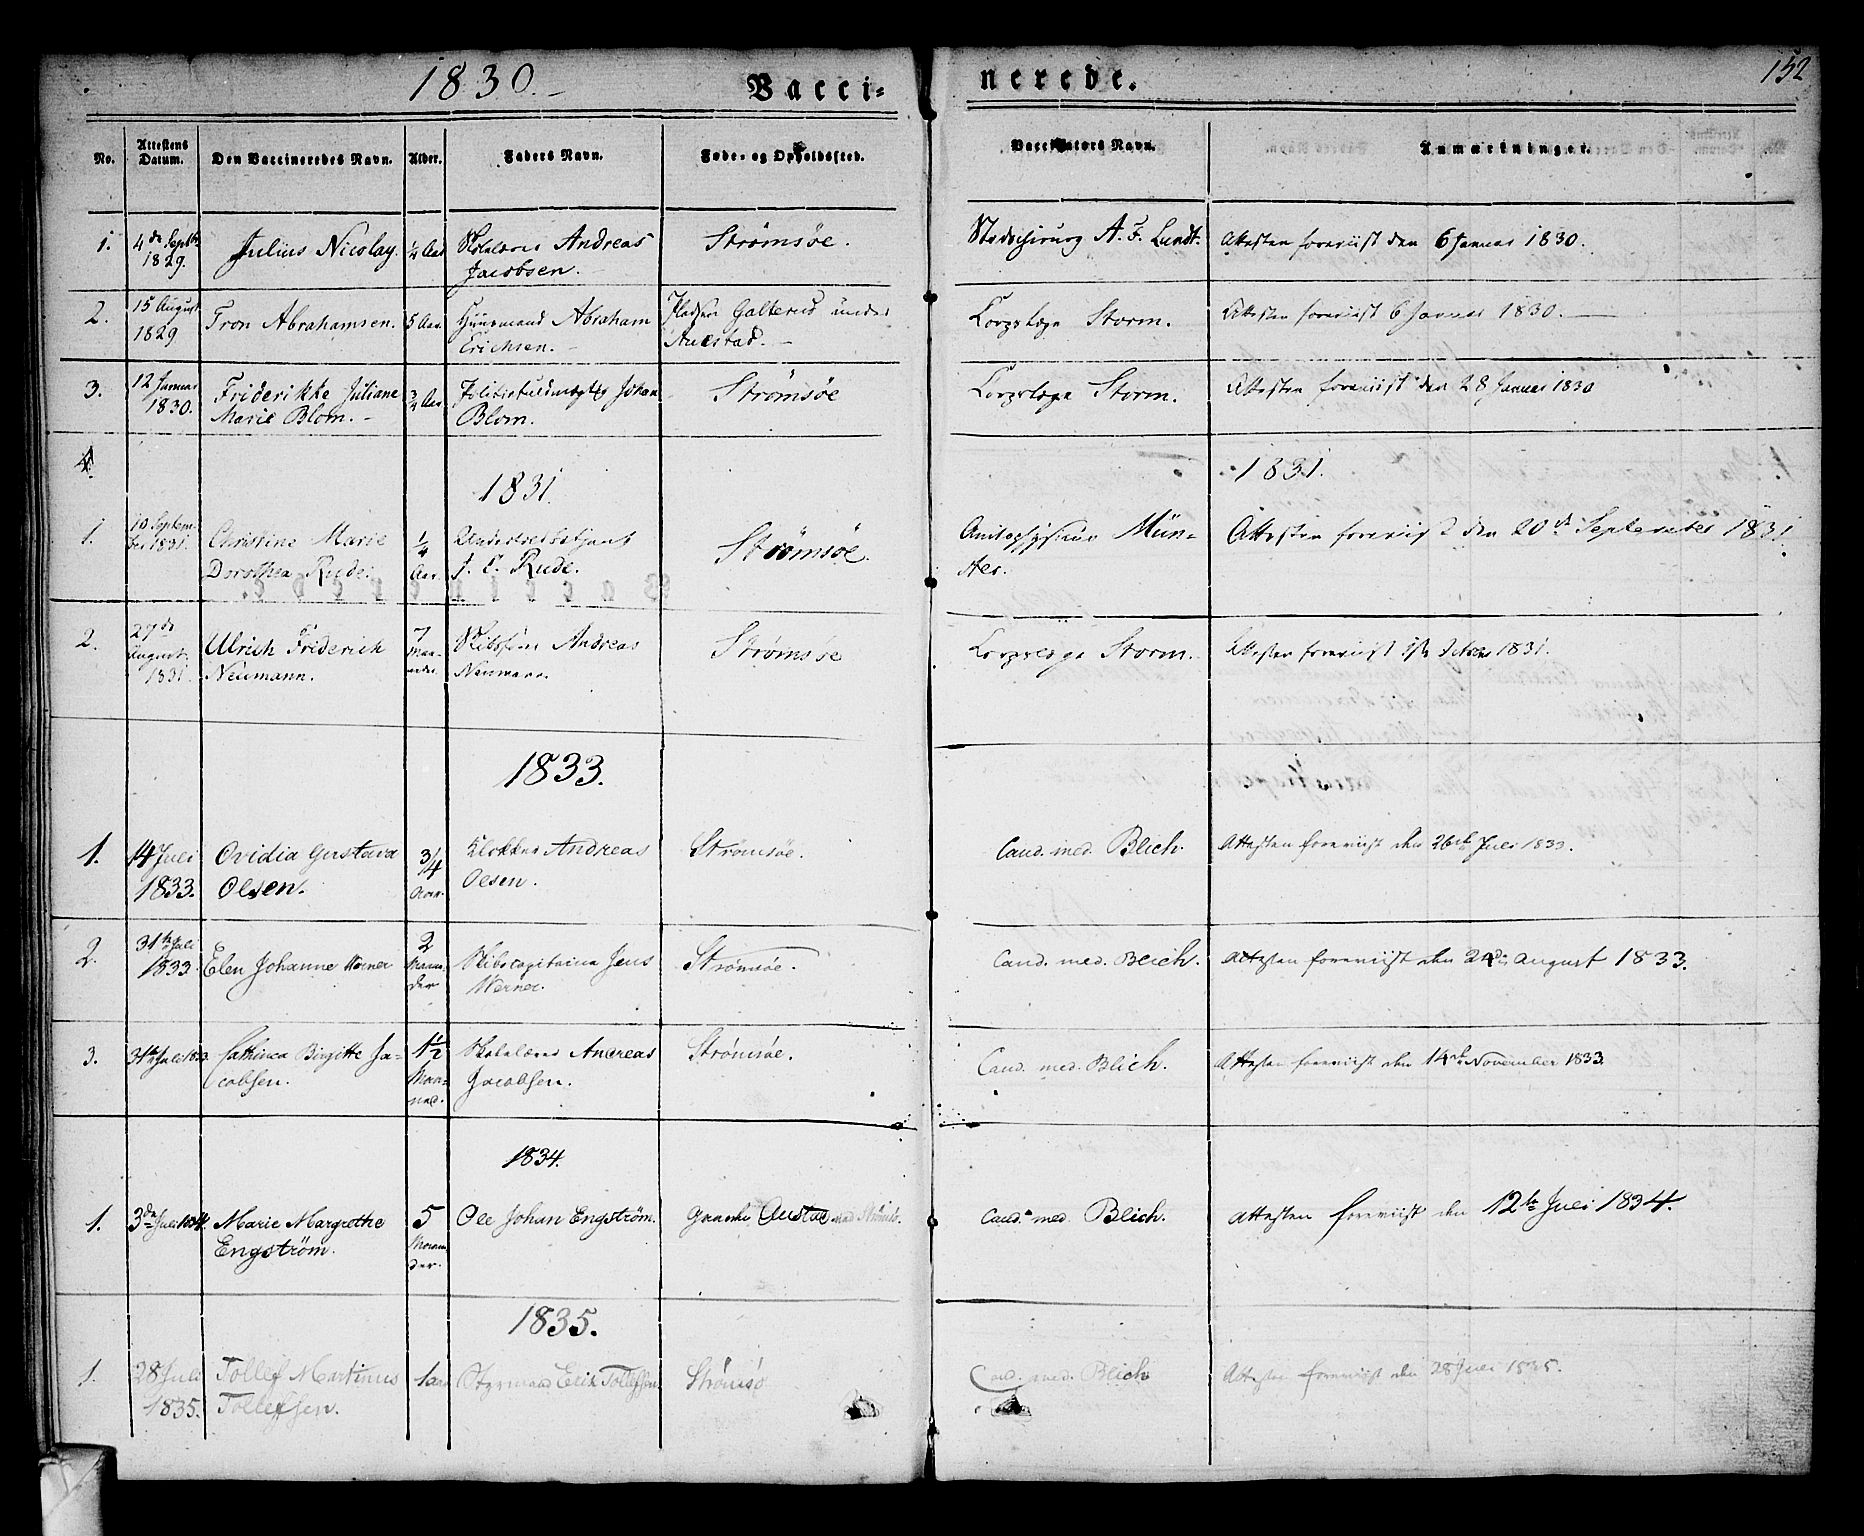 1830.
152
Vacci=
nerede.
No. Attestens Datum. Den Vaccineredes Navn. Alder. Faders Navn. Føde- og Opholdssted. Vaccinators Navn. Anmærkninger.
1. 4de Septbr 1829. Julius Nicolay. ¼ Aar Skolelærer Andreas Jacobsen. Strømsøe. Stadschirurg A. F. Lundt. Attesten foreviist den 6 Januar 1830.
2. 15 August 1829 Tron Abrahamsen. 5 Aar. Huusmand Abraham Erichsen. Pladsen Galterud under Austad. Corpslæge Storm. Attesten foreviist 6 Januar 1830.
3. 12 Januar 1830. Friderikke Juliane Marie Blom. ¾ Aar. Johan Blom. Strømsøe Corpslæge Storm. Attesten foreviist den 28 Januar 1830
4.
1831.
1831.
1. 10 September 1831. Christine Marie Dorothea Rude. ¼ Aar. Underretsbetjent J. C. Rude. Strømsøe Amtsphysicus Münster. Attesten foreviist den 20de September 1831.
2. 27de August 1831. Ulrich Friderich Neumann. 7 Maaneder. Andreas Neumann. Strømsøe Corpslæge Storm. Attesten foreviist October 1831.
1833.
1. 14 Juli 1833. Ovidia Gustava Olsen. 3/4 Aar. Klokker Andreas Olsen. Strømsøe. Cand. med. Blich. Attesten foreviist den 26de Juli 1833.
2. 31te Juli 1833 Elen Johanne Werner 2 Maaneder Skibscapitaine Jens Werner. Strømsøe. Cand. med. Blich. Attesten foreviist den 24de August 1833.
3. 31te Juli 1833. Cathinca Birgitte Jacobsen. 1½ Maaned. Skolelærer Andreas Jacobsen. Strømsøe. Cand. med. Blich. Attesten foreviist den 14de November 1833.
1834.
1. 3die Juli 1834. Marie Margrethe Engström. 5 Maaneder. Ole Johan Engström. Austad ved Strømsø. Cand. med. Blich. Attesten foreviist den 12te Juli 1834.
1835.
1. 28 Juli 1835. Tollef Martinus Tollefsen. 1 Aar Styrmand Erik Tollefsen. Strømsø Cand. med. Blich Attesten foreviist den 28 Juli 1835.